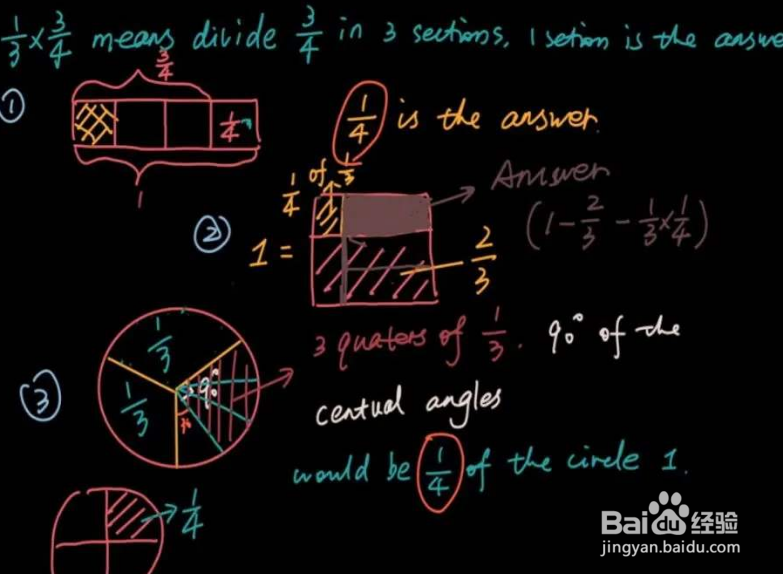 1/3 × 3/4 means divide 3/4 in 3 sections, 1 setion is the answe
3/4
① 1/4
1
1/4 is the answer.
1/4 of 1/3
Answer
② 1 = 2/3 (1 - 2/3 - 1/3 × 1/4)
3 quaters of 1/3. 90° of the
centual angles
would be 1/4 of the circle 1.
③ 1/3
1/3
90°
1/4
Baidu 经验
jingyan.baidu.com